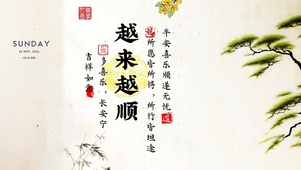 SUNDAY
平安喜乐顺遂无忧
所愿皆所得，所行皆坦途
越来越顺
多喜乐，长安宁
吉祥如意